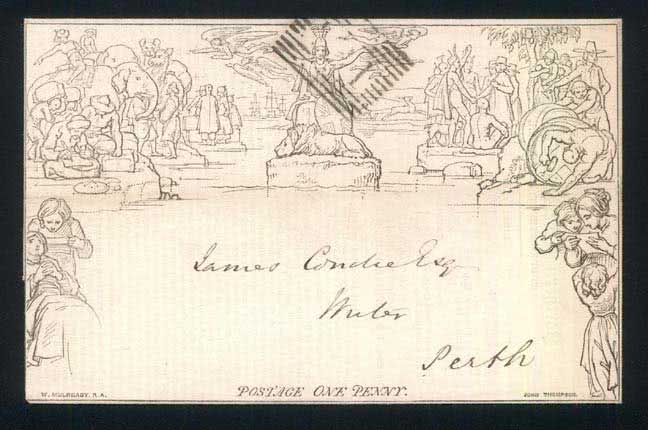 James Condie Esq
Writer
Perth
POSTAGE ONE PENNY.
W. MULREADY. R.A.
JOHN THOMPSON.